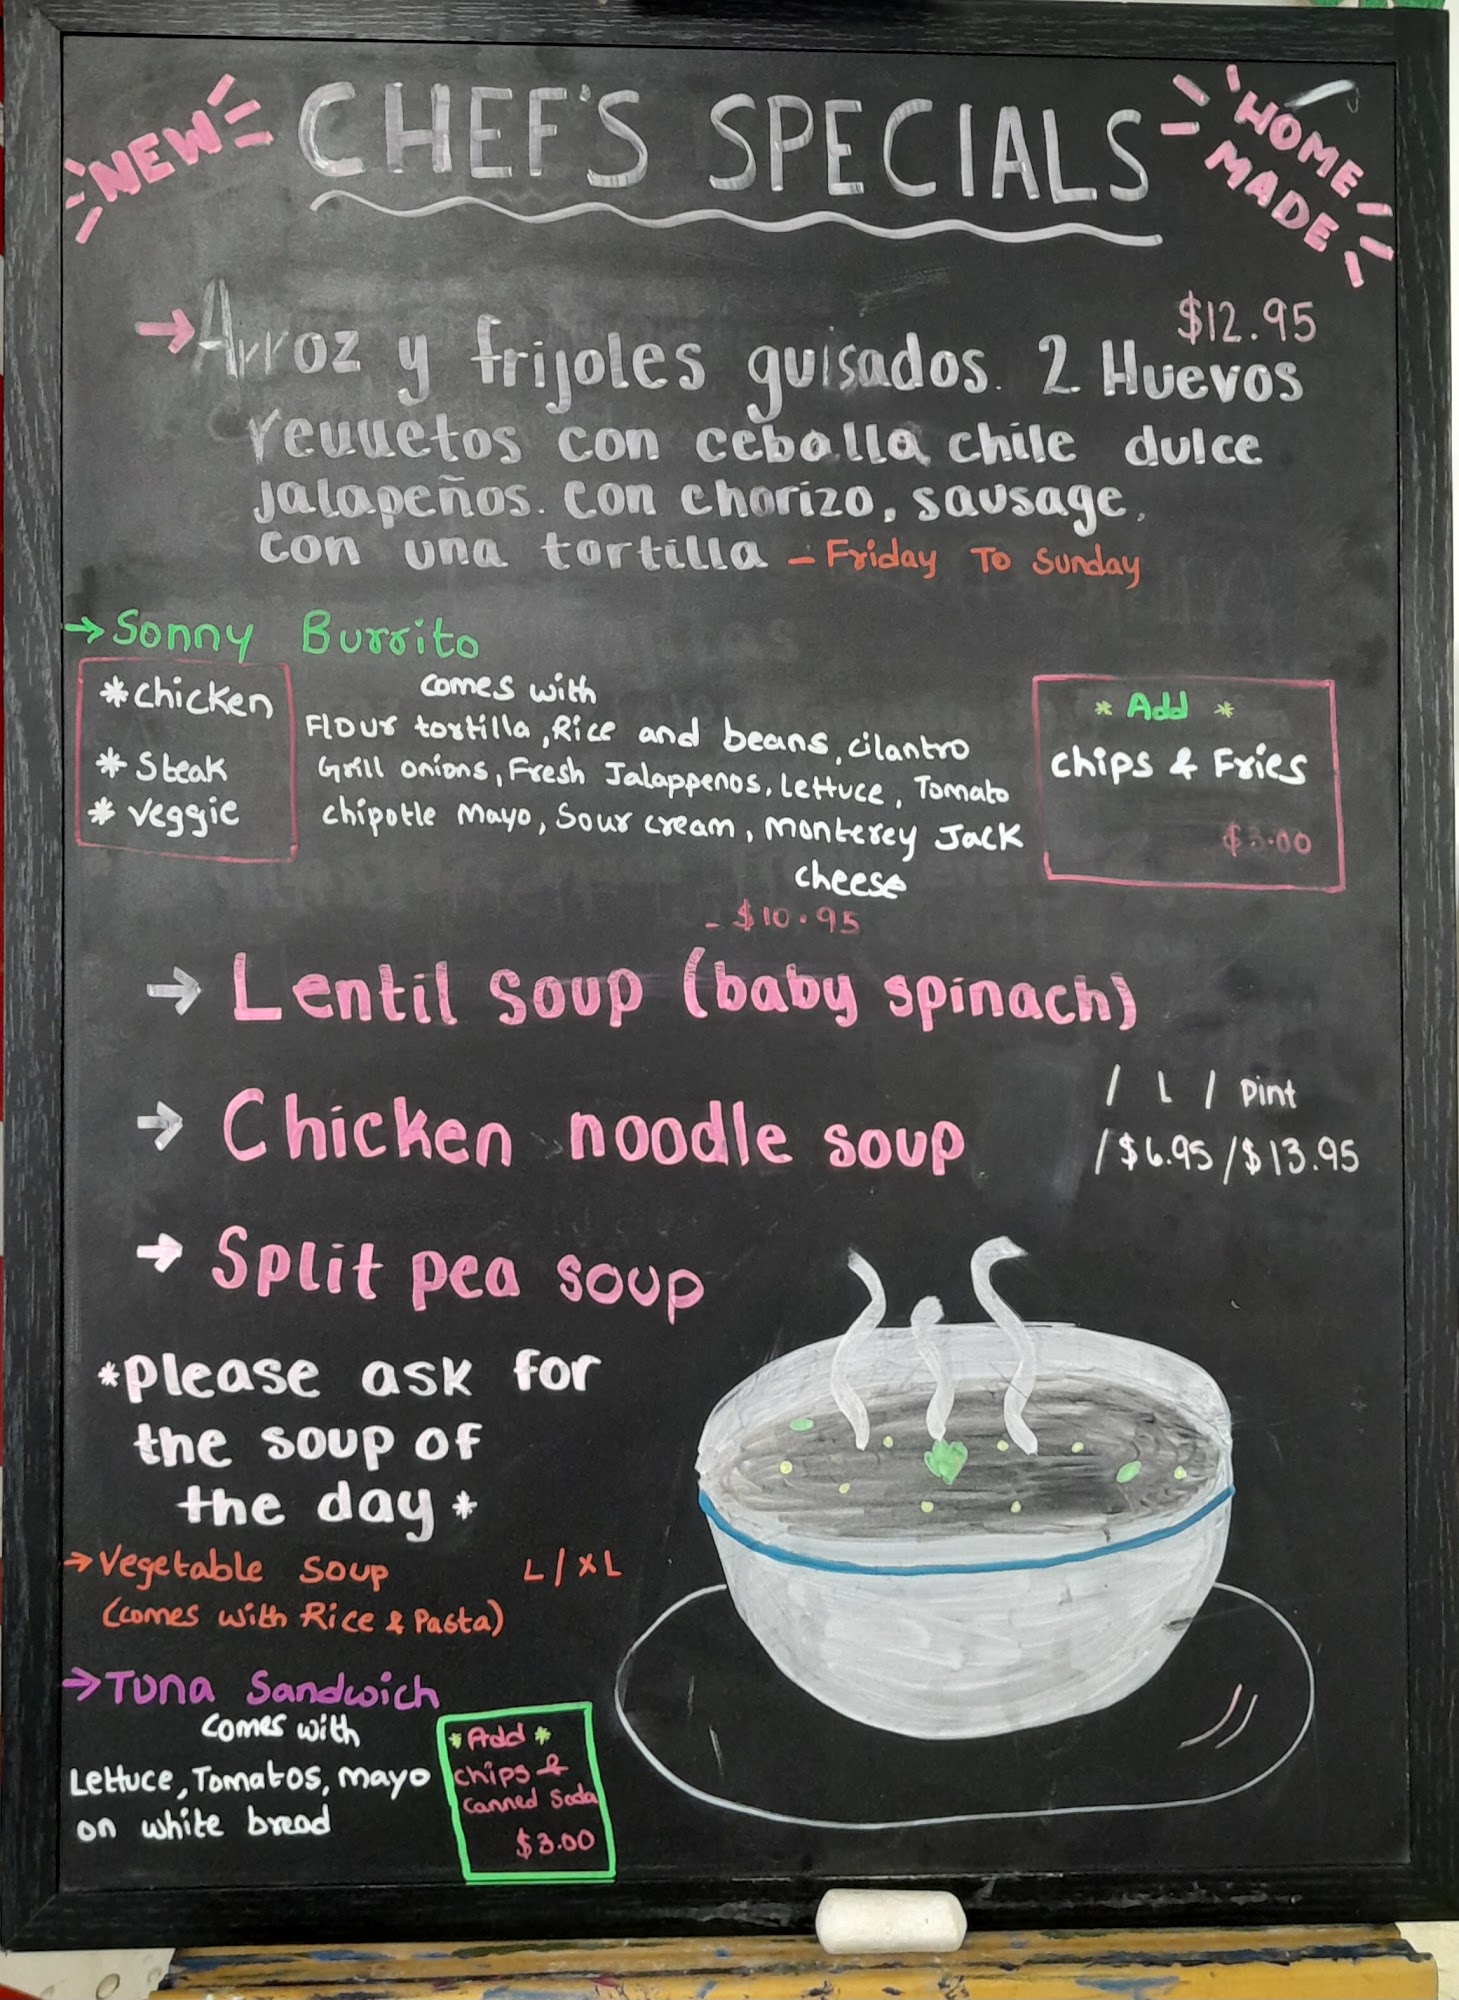 NEW
CHEF'S SPECIALS
HOME
MADE
$12.95
→ Arroz y frijoles guisados. 2 Huevos
revuuetos con ceballa chile dulce
jalapeños. con chorizo, sausage,
con una tortilla – Friday To Sunday
→ Sonny Burrito
* chicken
* Steak
* veggie
comes with
Flour tortilla, Rice and beans, cilantro
Grill onions, Fresh Jalappenos, Lettuce, Tomato
chipotle Mayo, Sour cream, Monterey Jack
cheese
- $10.95
* Add *
chips & Fries
$3.00
→ Lentil soup (baby spinach)
→ Chicken noodle soup
/ L / pint
/ $6.95 / $13.95
→ Split pea soup
*please ask for
the soup of
the day *
→ Vegetable soup L / XL
(comes with Rice & Pasta)
→ Tuna Sandwich
comes with
Lettuce, Tomatos, mayo
on white bread
* Add *
chips &
canned Soda
$3.00